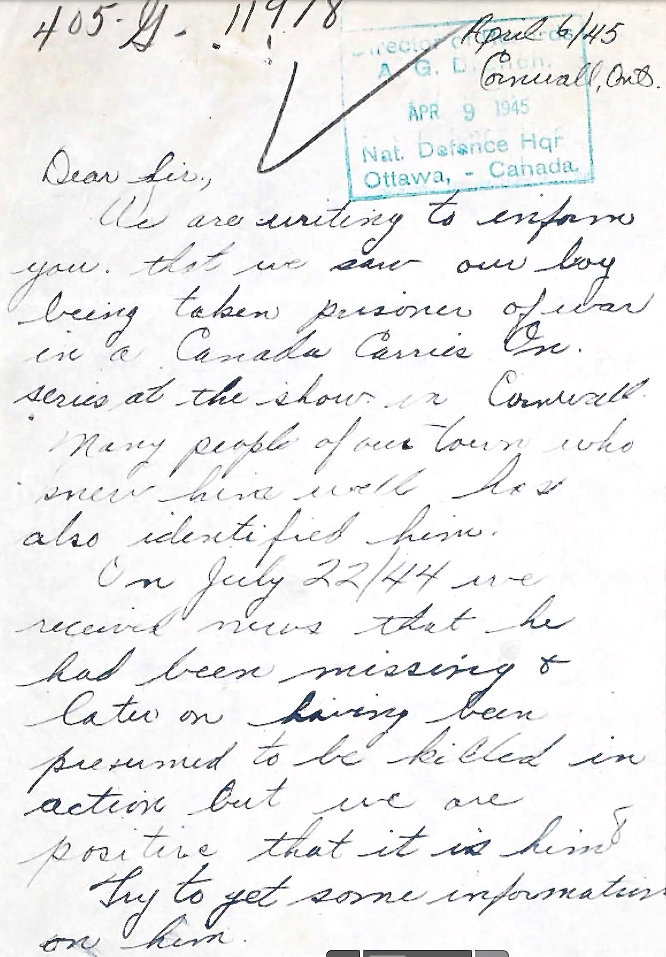 405-G. 11978
April 6/45
Cornwall, Ont.
Director of Records
A. G. Branch
APR 9 1945
Nat. Defence Hqr
Ottawa, - Canada.
Dear Sir.,
We are writing to inform
you. that we saw our boy
being taken prisoner of war
in a Canada Carries On.
series at the show. in Cornwall.
Many people of our town who
knew him well has
also identified him.
On July 22/44 we
received news that he
had been missing &
later on having been
presumed to be killed in
action but we are
positive that it is him
Try to get some information
on him.